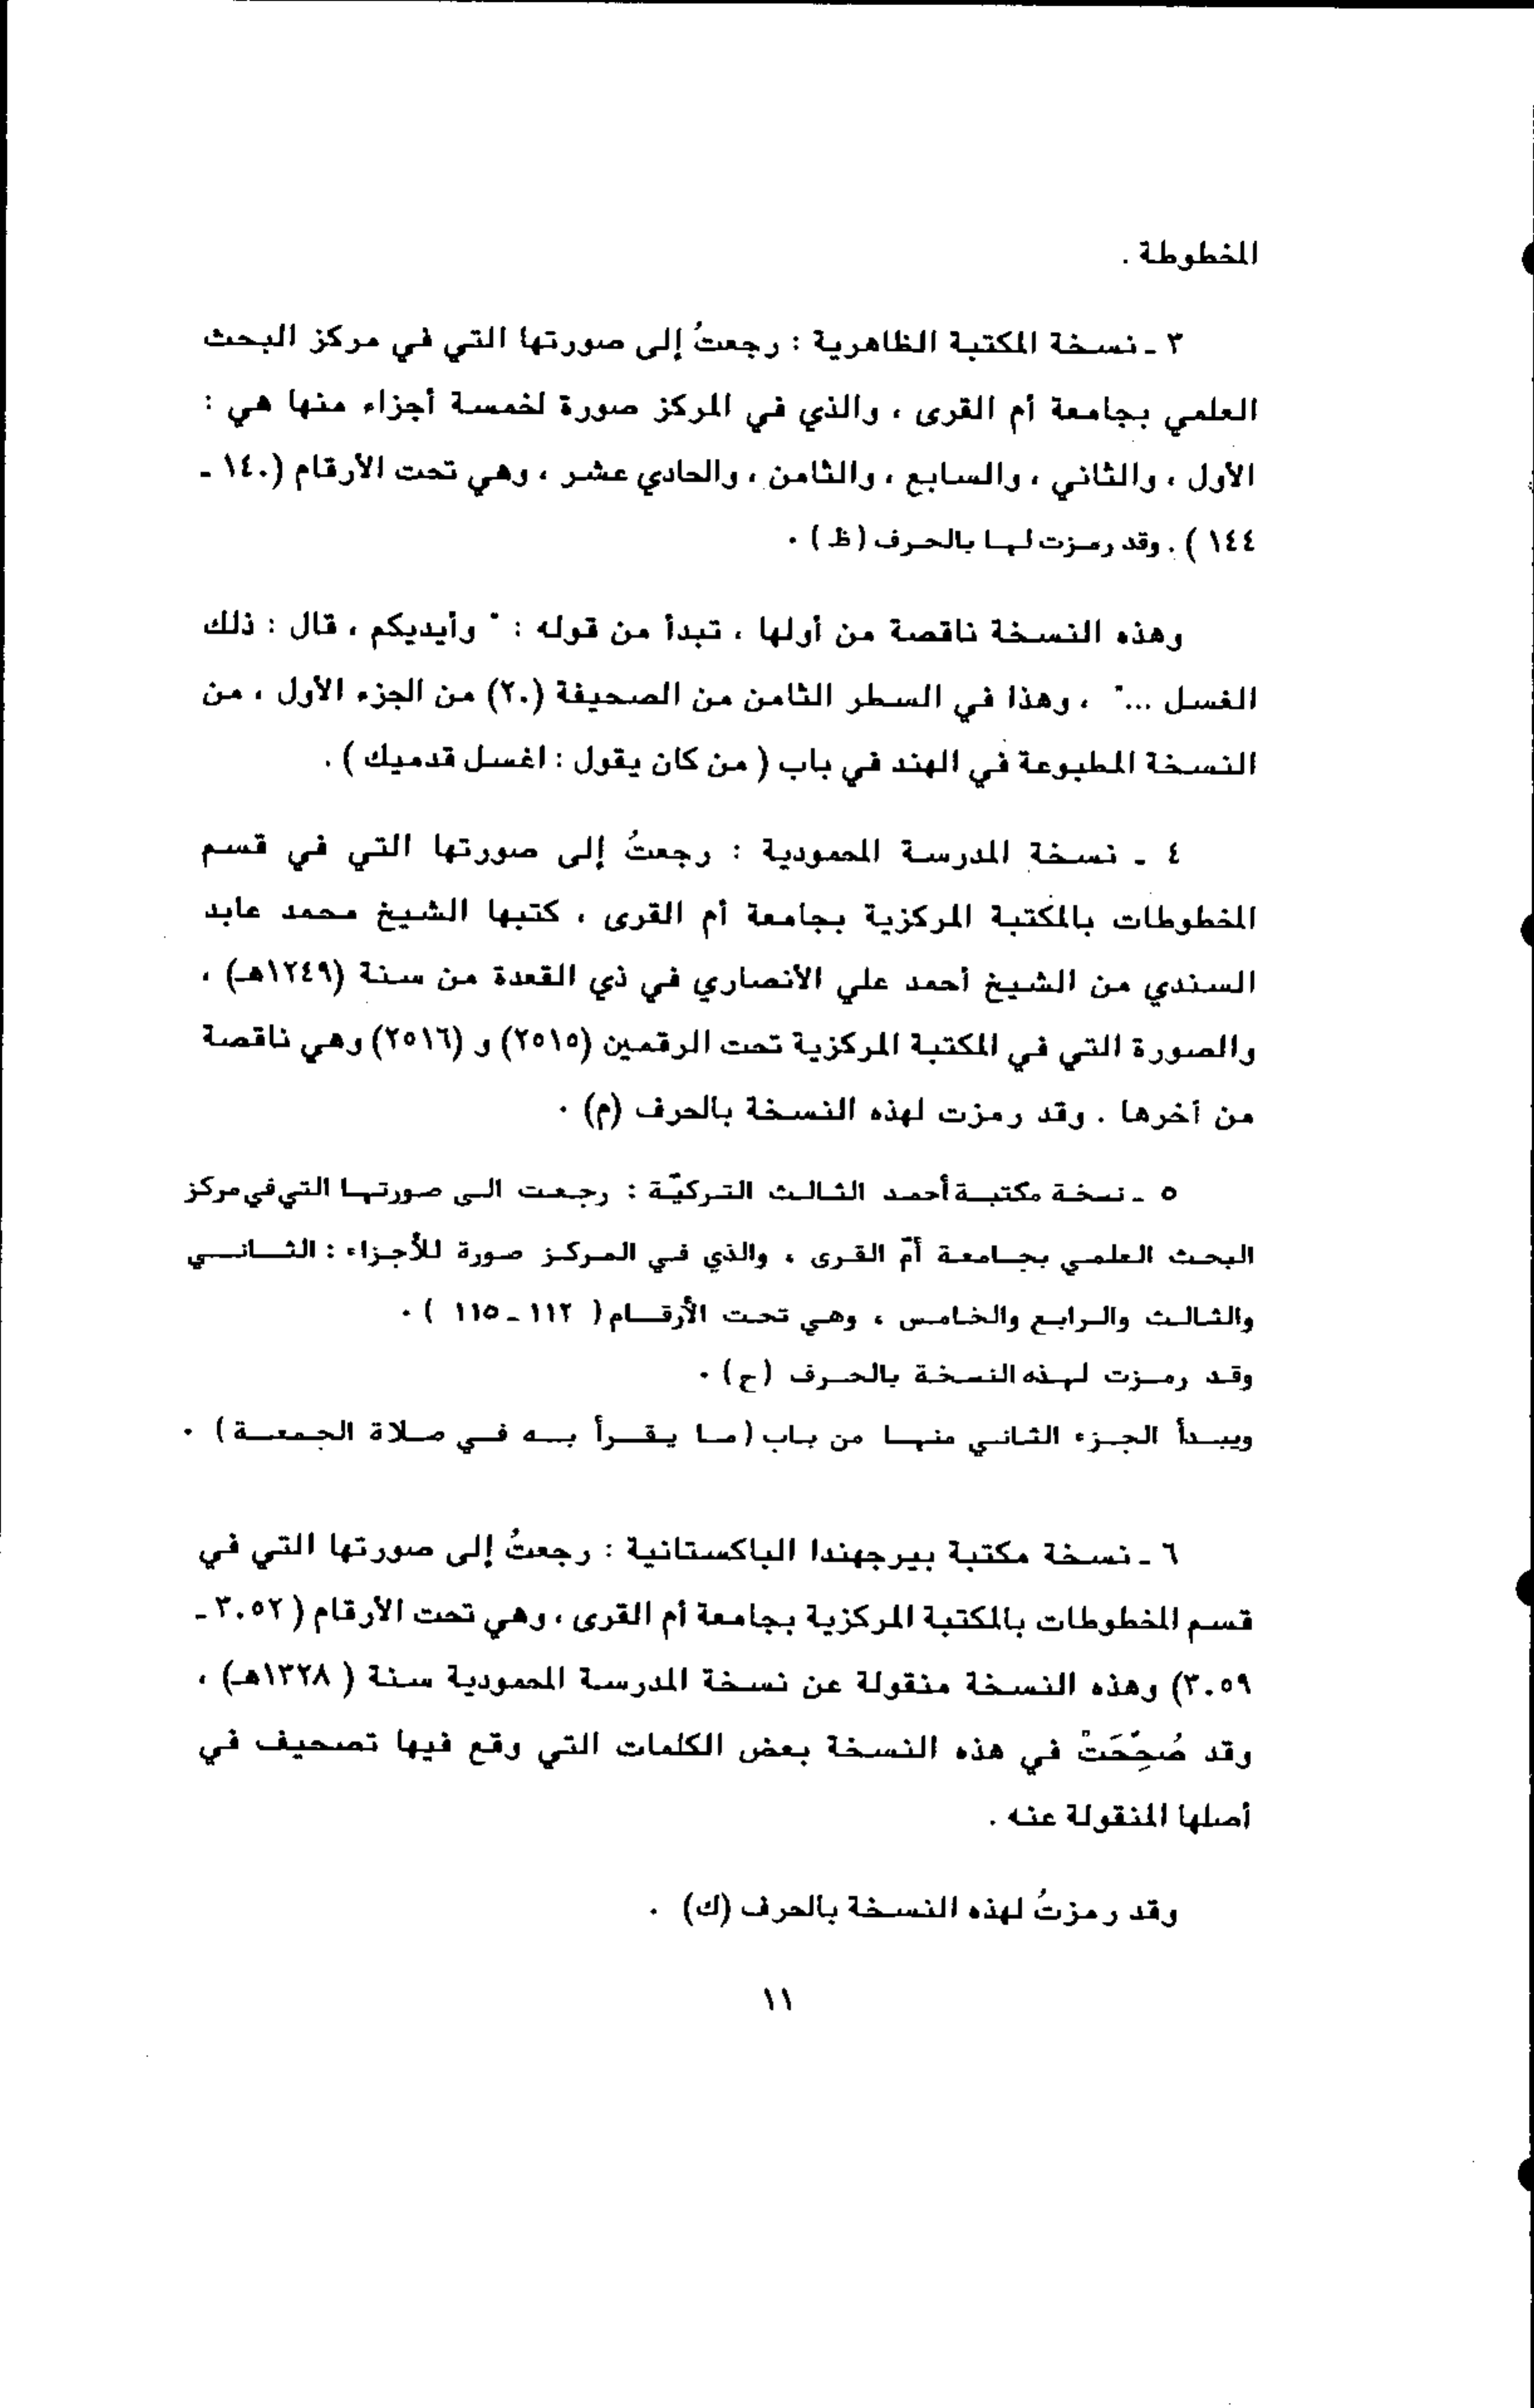 المخطوطة .
٣ ـ نسخة المكتبة الظاهرية : رجعتُ إلى صورتها التي في مركز البحث
العلمي بجامعة أم القرى ، والذي في المركز صورة لخمسة أجزاء منها هي :
الأول ، والثاني ، والسابع ، والثامن ، والحادي عشر ، وهي تحت الأرقام (١٤٠ ـ
١٤٤ ) . وقد رمزت لها بالحرف (ظ) .
وهذه النسخة ناقصة من أولها ، تبدأ من قوله : " وأيديكم ، قال : ذلك
الغسل ..." ، وهذا في السطر الثامن من الصحيفة (٢٠) من الجزء الأول ، من
النسخة المطبوعة في الهند في باب ( من كان يقول : اغسل قدميك ) .
٤ ـ نسخة المدرسة المحمودية : رجعتُ إلى صورتها التي في قسم
المخطوطات بالمكتبة المركزية بجامعة أم القرى ، كتبها الشيخ محمد عابد
السندي من الشيخ أحمد علي الأنصاري في ذي القعدة من سنة (١٢٤٩هـ) ،
والصورة التي في المكتبة المركزية تحت الرقمين (٢٥١٥) و (٢٥١٦) وهي ناقصة
من آخرها . وقد رمزت لهذه النسخة بالحرف (م) .
٥ ـ نسخة مكتبة أحمد الثالث التركيّة : رجعت الى صورتها التي في مركز
البحث العلمي بجامعة أمّ القرى ، والذي في المركز صورة للأجزاء : الثاني
والثالث والرابع والخامس ، وهي تحت الأرقام ( ١١٢ ـ ١١٥ ) .
وقد رمزت لهذه النسخة بالحرف (ح) .
ويبدأ الجزء الثاني منها من باب (ما يقرأ به في صلاة الجمعة) .
٦ ـ نسخة مكتبة بيرجهندا الباكستانية : رجعتُ إلى صورتها التي في
قسم المخطوطات بالمكتبة المركزية بجامعة أم القرى ، وهي تحت الأرقام ( ٣٠٥٢ ـ
٣٠٥٩) وهذه النسخة منقولة عن نسخة المدرسة المحمودية سنة ( ١٣٢٨هـ) ،
وقد صُحِّحَتْ في هذه النسخة بعض الكلمات التي وقع فيها تصحيف في
أصلها المنقولة عنه .
وقد رمزتُ لهذه النسخة بالحرف (ك) .
١١